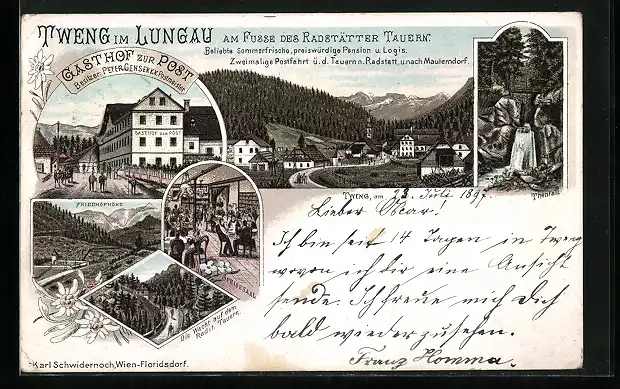 TWENG IM LUNGAU AM FUSSE DES RADSTÄTTER TAUERN.
Beliebte Sommerfrische, preiswürdige Pension u. Logis,
Zweimalige Postfahrt ü. d. Tauern n. Radstatt, u. nach Mauterndorf.
GASTHOF ZUR POST
Besitzer PETER
GASTHOF ZUR POST
TWENG, am 23. Juli 1897
Lieber Oscar!
Ich bin seit 14 Tagen in Tweng
wovon ich dir eine Ansicht
sende. Ich freue mich Dich
bald wiederzusehen.
Franz Homma.
FRIEDHOFHÖHE
SPEISESAAL
Die Wacht auf dem
Radst. Tauern.
Karl Schwidernoch, Wien-Floridsdorf.